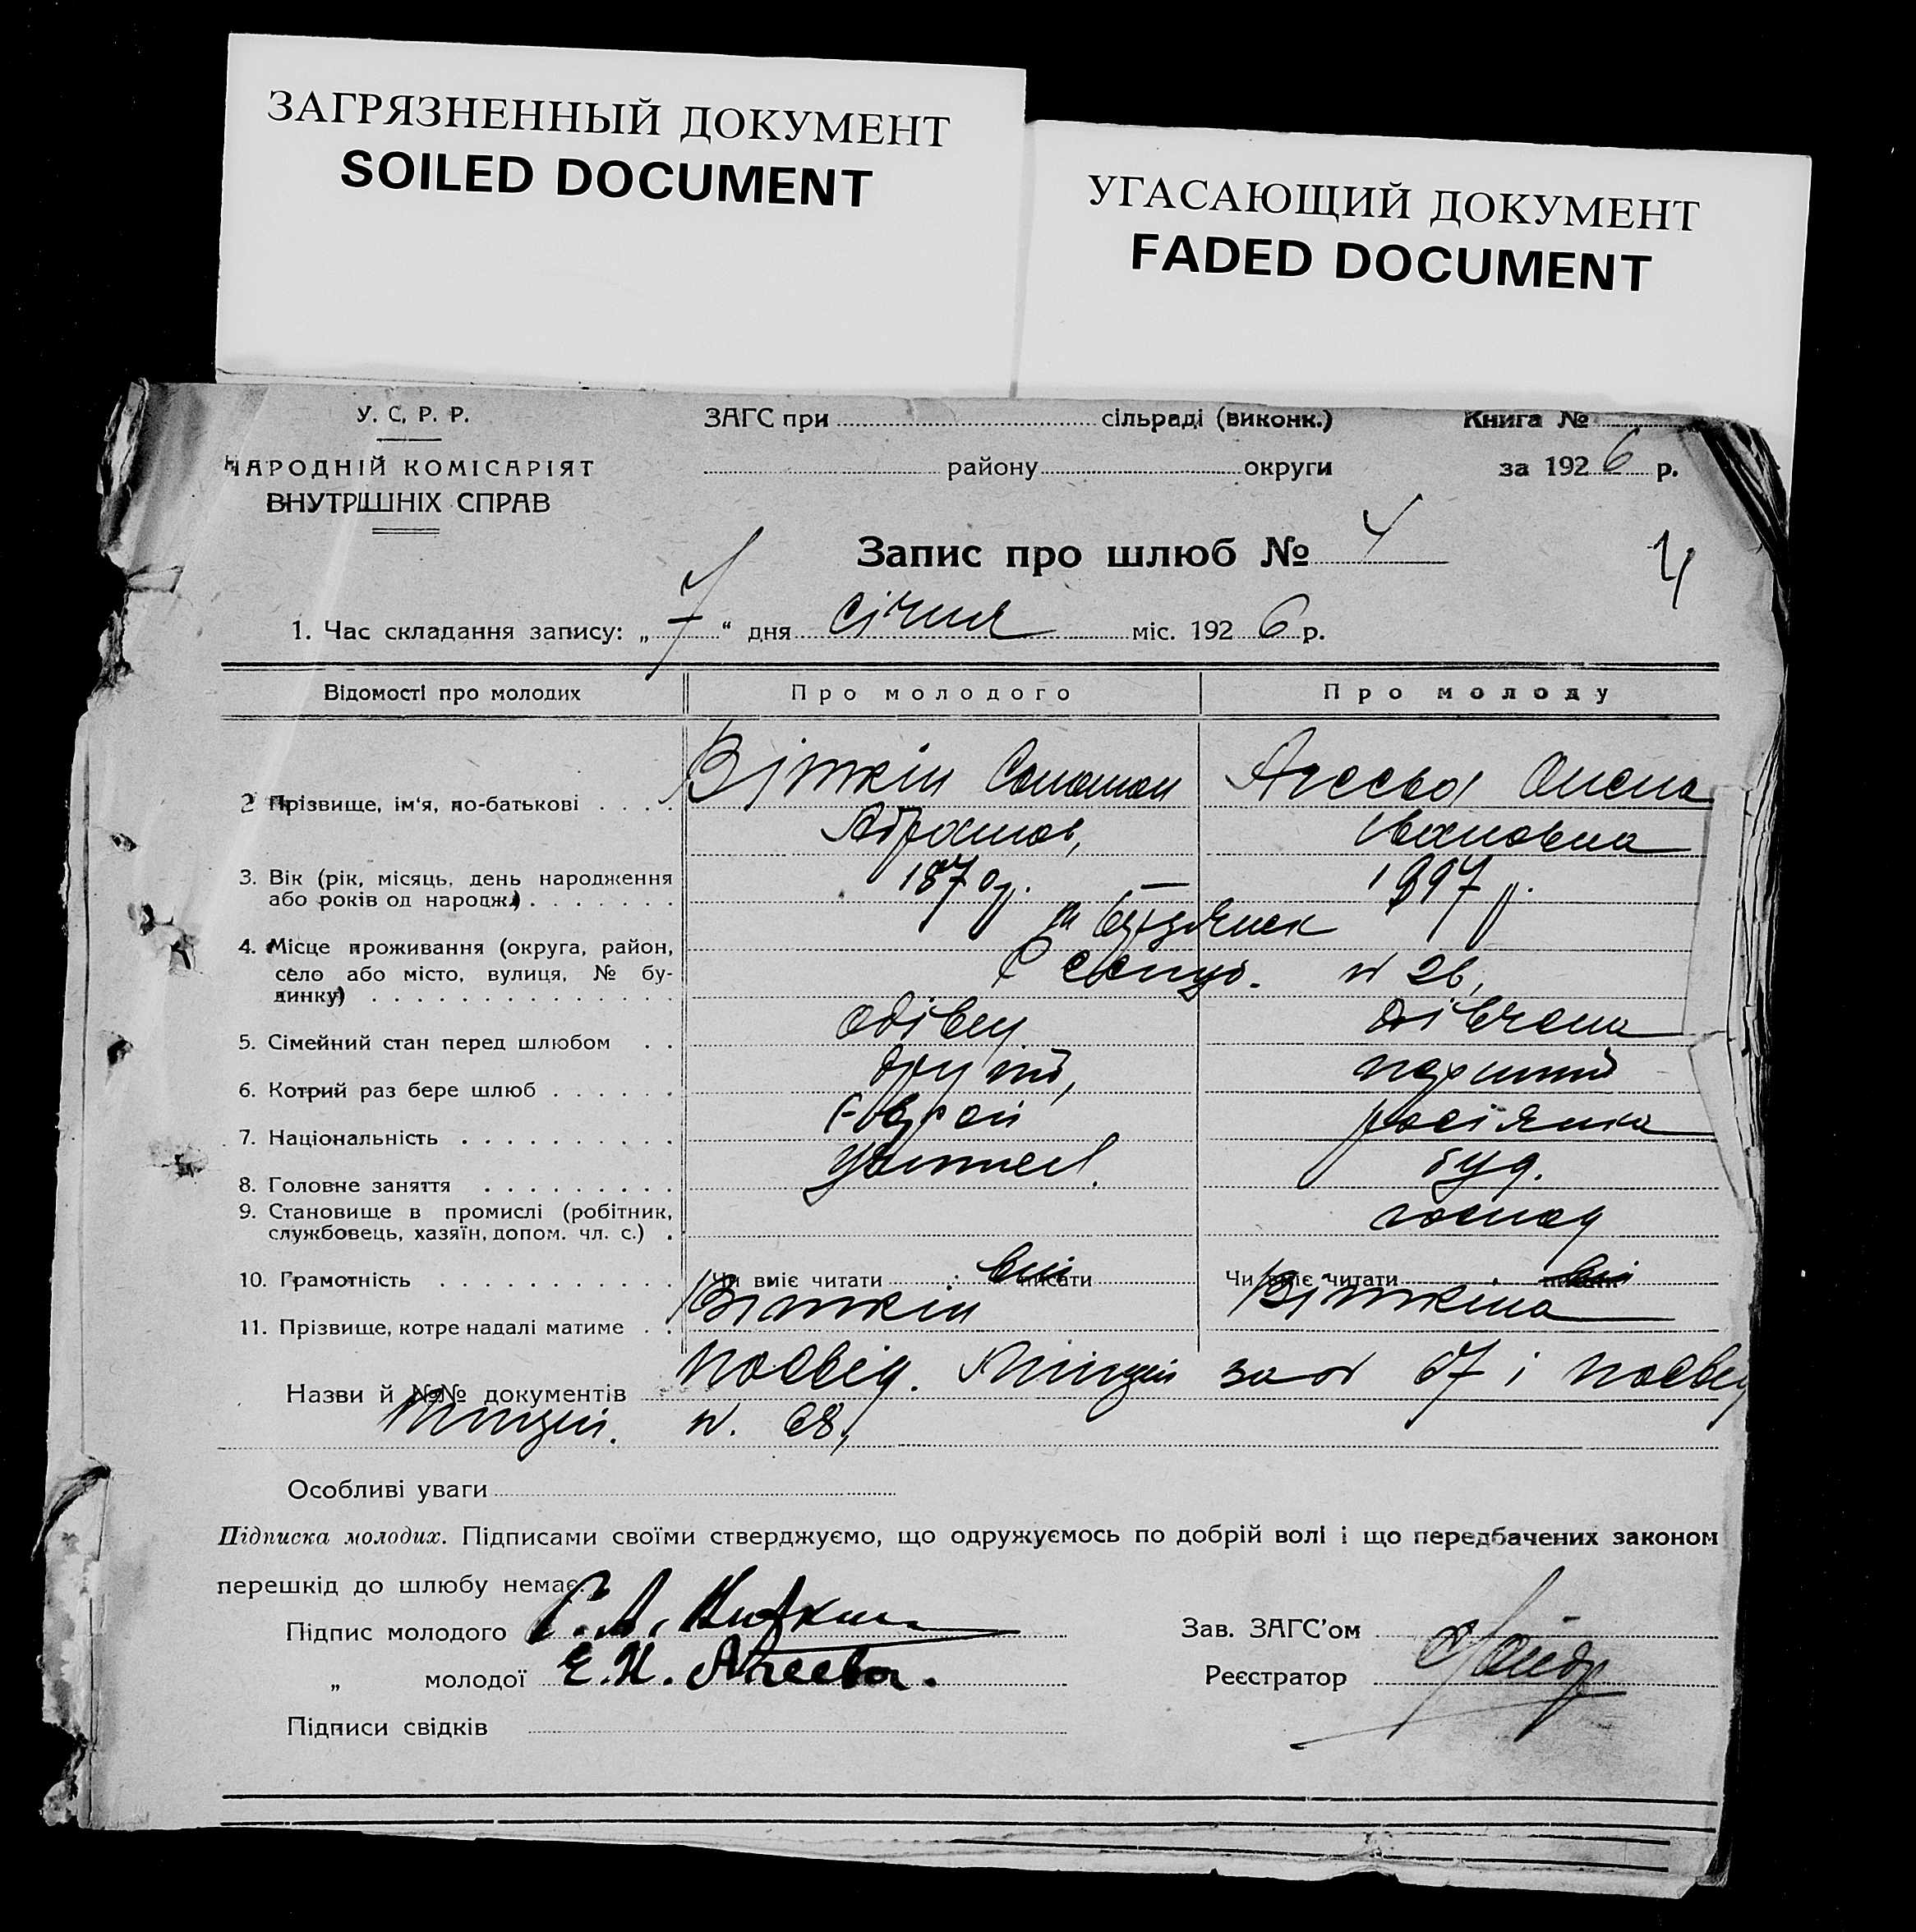 ЗАГРЯЗНЕННЫЙ ДОКУМЕНТ
SOILED DOCUMENT
УГАСАЮЩИЙ ДОКУМЕНТ
FADED DOCUMENT
У. С. Р. Р.
НАРОДНІЙ КОМІСАРІЯТ
ВНУТРІШНІХ СПРАВ
ЗАГС при сільраді (виконк.)
району округи
Книга №
за 1926 р.
Запис про шлюб № 4
4
1. Час складання запису: „7“ дня січня міс. 1926 р.
Відомості про молодих Про молодого Про молоду
2 Прізвище, ім'я, по-батькові Віткін Соломон Агеєва Олена
Абрамов, Івановна
3. Вік (рік, місяць, день народження 1870 р. — 1897 р.
або років од народж.)
4. Місце проживання (округа, район,
село або місто, вулиця, № бу- № 26,
динку)
5. Сімейний стан перед шлюбом одівец дівчина
6. Котрий раз бере шлюб другий, перший
7. Національність Єврей росіянка
8. Головне заняття учител.
9. Становище в промислі (робітник, господ
службовець, хазяїн, допом. чл. с.)
10. Грамотність Чи вміє читати писати Чи вміє читати
11. Прізвище, котре надалі матиме Віткін Віткіна
Назви й №№ документів Посвід. Міліції за № 67 і посвід
Міліції. №. 68,
Особливі уваги
Підписка молодих. Підписами своїми стверджуємо, що одружуємось по добрій волі і що передбачених законом
перешкід до шлюбу немає.
Підпис молодого С. А. Виткин
„ молодої Е. И. Агеева.
Підписи свідків
Зав. ЗАГС'ом
Реєстратор